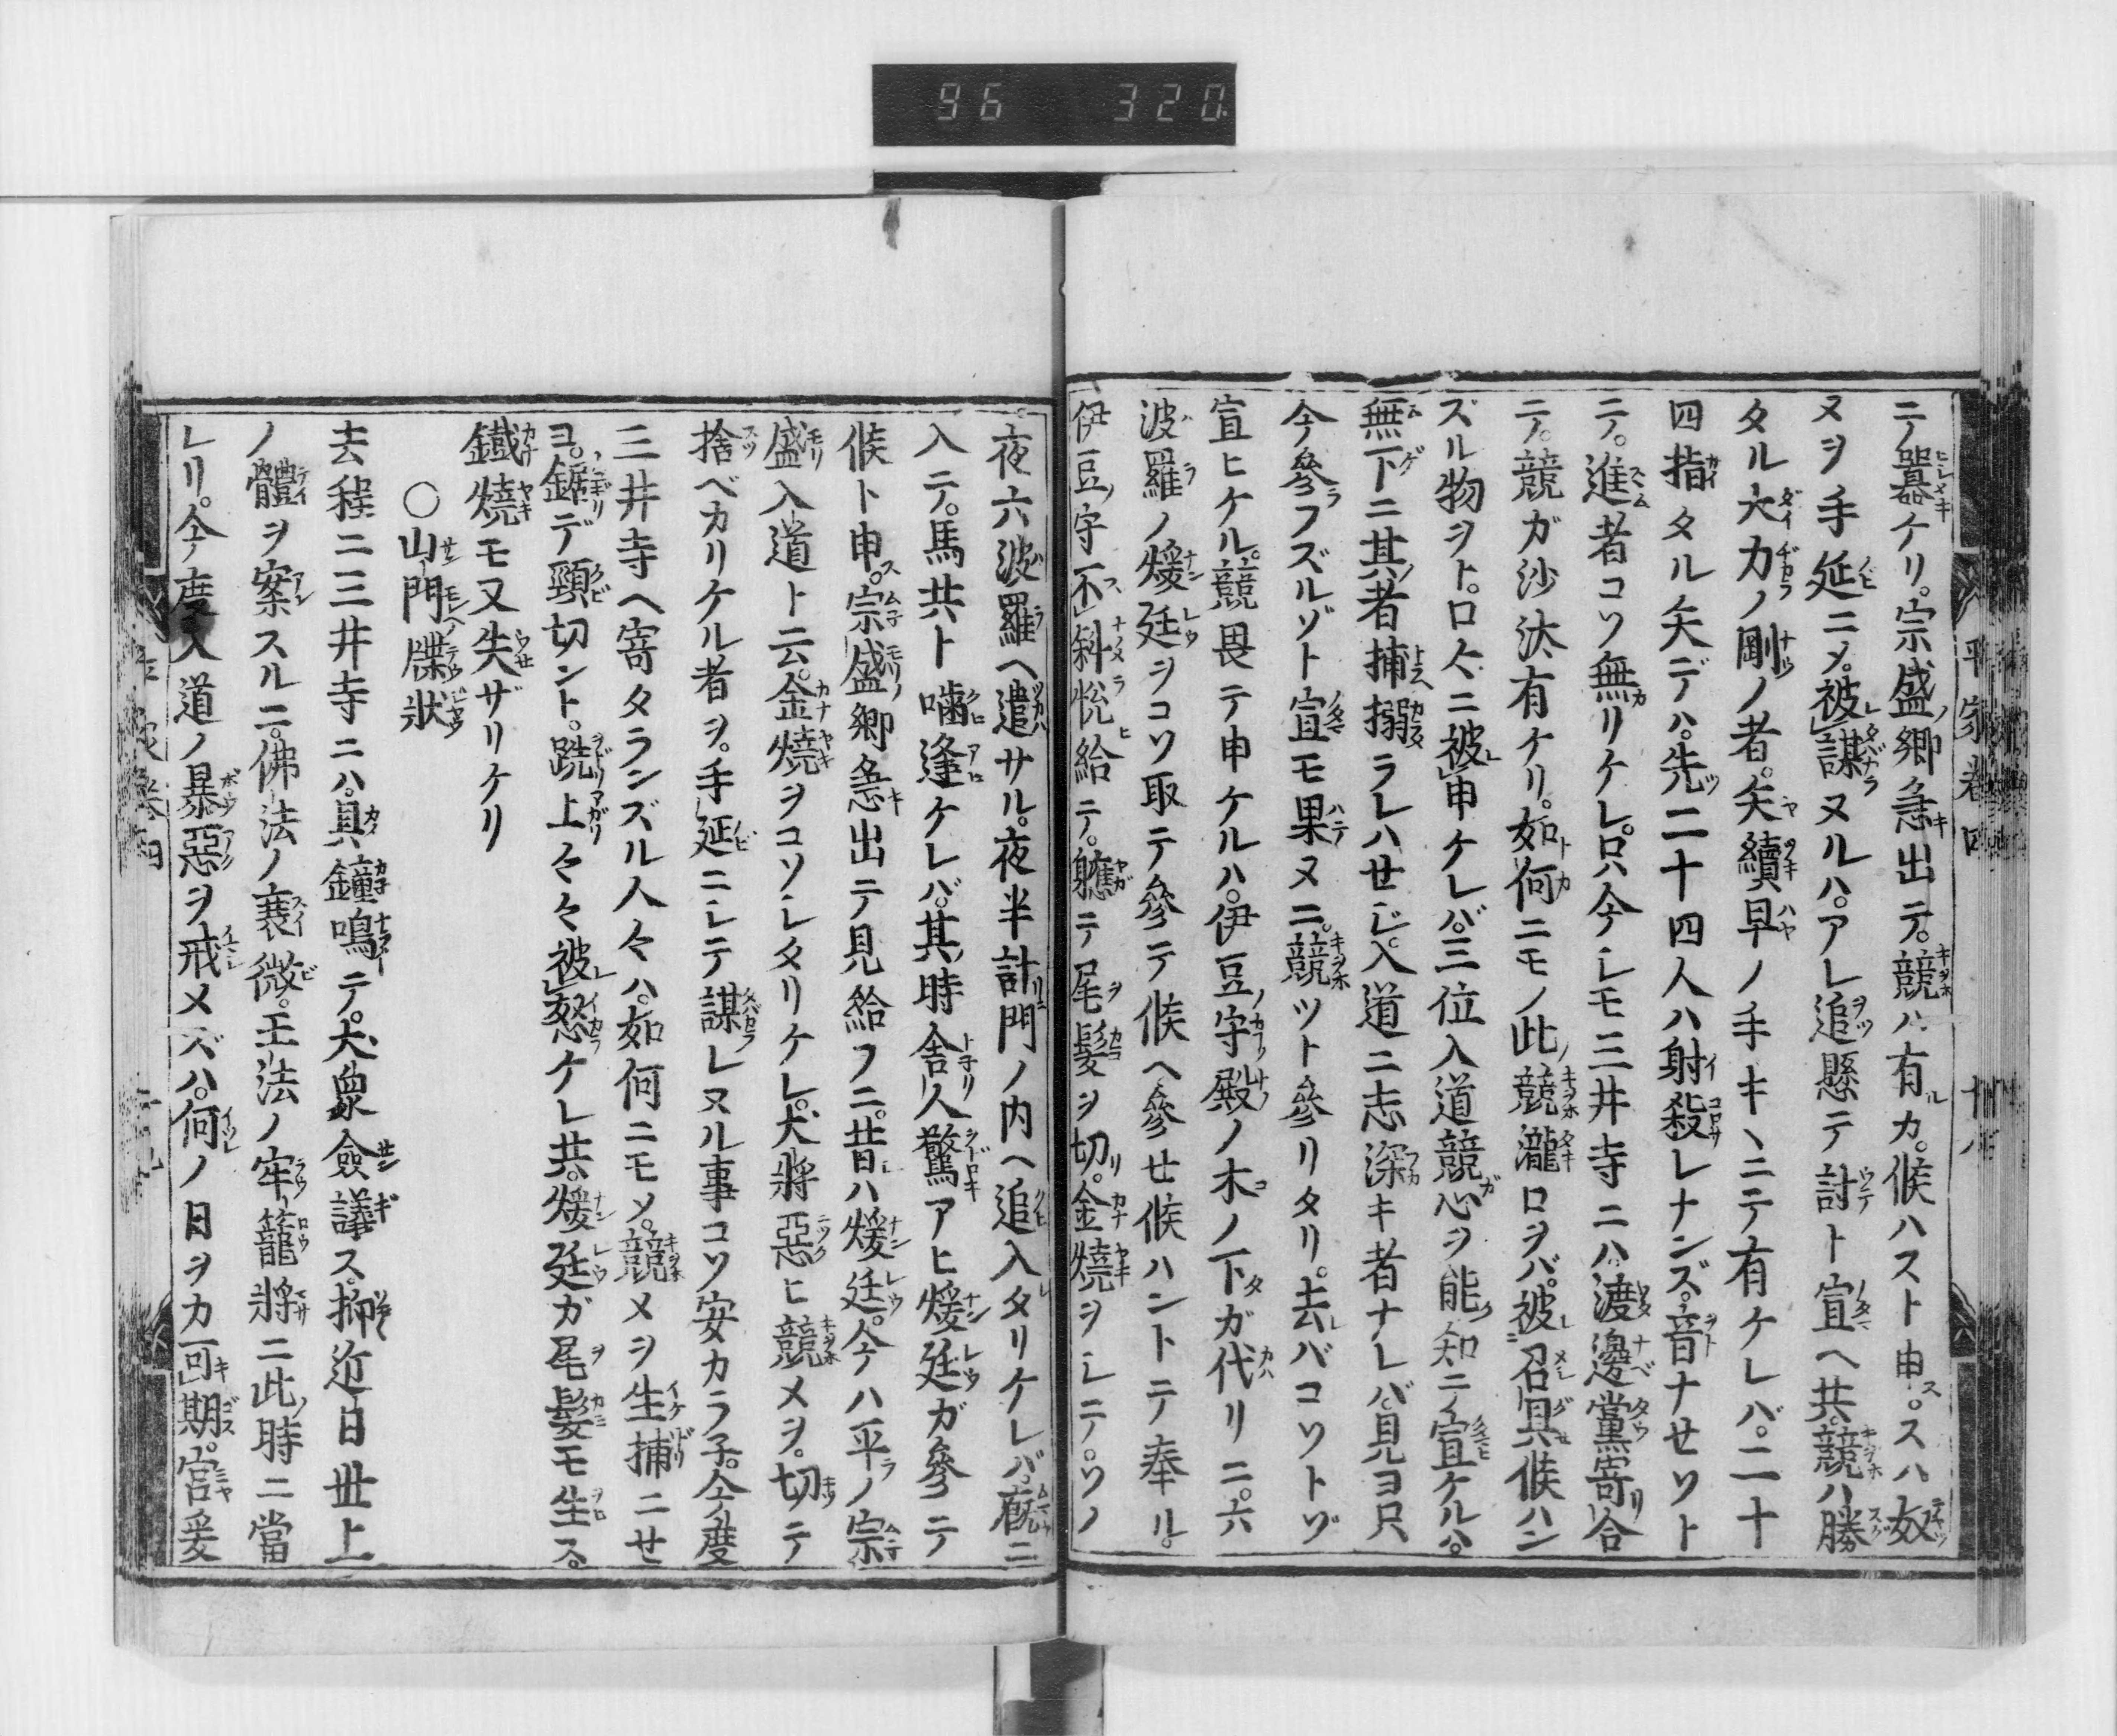 96 320
平家巻四 十八
ニテ噐ケリ。宗盛ノ卿急出テ。競ハ有ルカ。候ハスト申ス。スハ奴
ヌヲ手延ニメ。被謀ヌルハ。アレ追懸テ討ト宣ヘ共。競ハ勝
タル大力ノ剛ノ者。矢續早ノ手キヽニテ有ケレバ。二十
四指タル矢デハ。先二十四人ハ射殺レナンズ。音ナセソト
ニテ。進者コソ無リケレ。只今シモ三井寺ニハ。渡邊黨寄合
ニテ。競ガ沙汰有ケリ。如何ニモノ此競瀧口ヲバ。被召具候ハン
ズル物ヲト。口々ニ被申ケレバ。三位入道競ガ心ヲ能知ニテ宣ケルハ。
無下ニ其ノ者捕搦ラレハセジ。入道ニ志深キ者ナレバ。見ヨ只
今參フズルゾト宣モ果ヌニ。競ツト參リタリ。去レバコソトゾ
宣ヒケル。競畏テ申ケルハ。伊豆ノ守殿ノ木ノ下ガ代リニ。六
波羅ノ煖廷ヲコソ取テ參テ候ヘ參セ候ハントテ奉ル。
伊豆ノ守不斜悅給テ。軈テ尾髮ヲ切リ。金燒ヲシテ。ソノ
夜六波羅ヘ遣サル。夜半計門ノ内ヘ追入タリケレバ。廐ニ
入テ。馬共ト噛逢ケレバ。其時舎人驚アヒ煖廷ガ參テ
候ト申ス。宗盛ノ卿急キ出テ見給フニ。昔ハ煖廷。今ハ平ノ宗
盛入道ト云。金燒ヲコソシタリケレ。大將惡ヒ競メヲ。切テ
捨ベカリケル者ヲ。手延ニシテ謀レヌル事コソ安カラ子。今度
三井寺ヘ寄タランズル人々ハ。如何ニモソ。競メヲ生捕ニセ
ヨ。鋸デ頸切ント。跣上々々被怒ケレ共。煖廷ガ尾髮モ生ス。
鐵燒モ又失ザリケリ
〇山門牒狀
去程ニ三井寺ニハ。貝鐘鳴テ。大衆僉議ス。抑近日世上
ノ體ヲ案スルニ。佛法ノ衰微。王法ノ牢籠將ニ此時ニ當
レリ。今度入道ノ暴惡ヲ戒メズハ。何ノ日ヲカ可期。宮爰